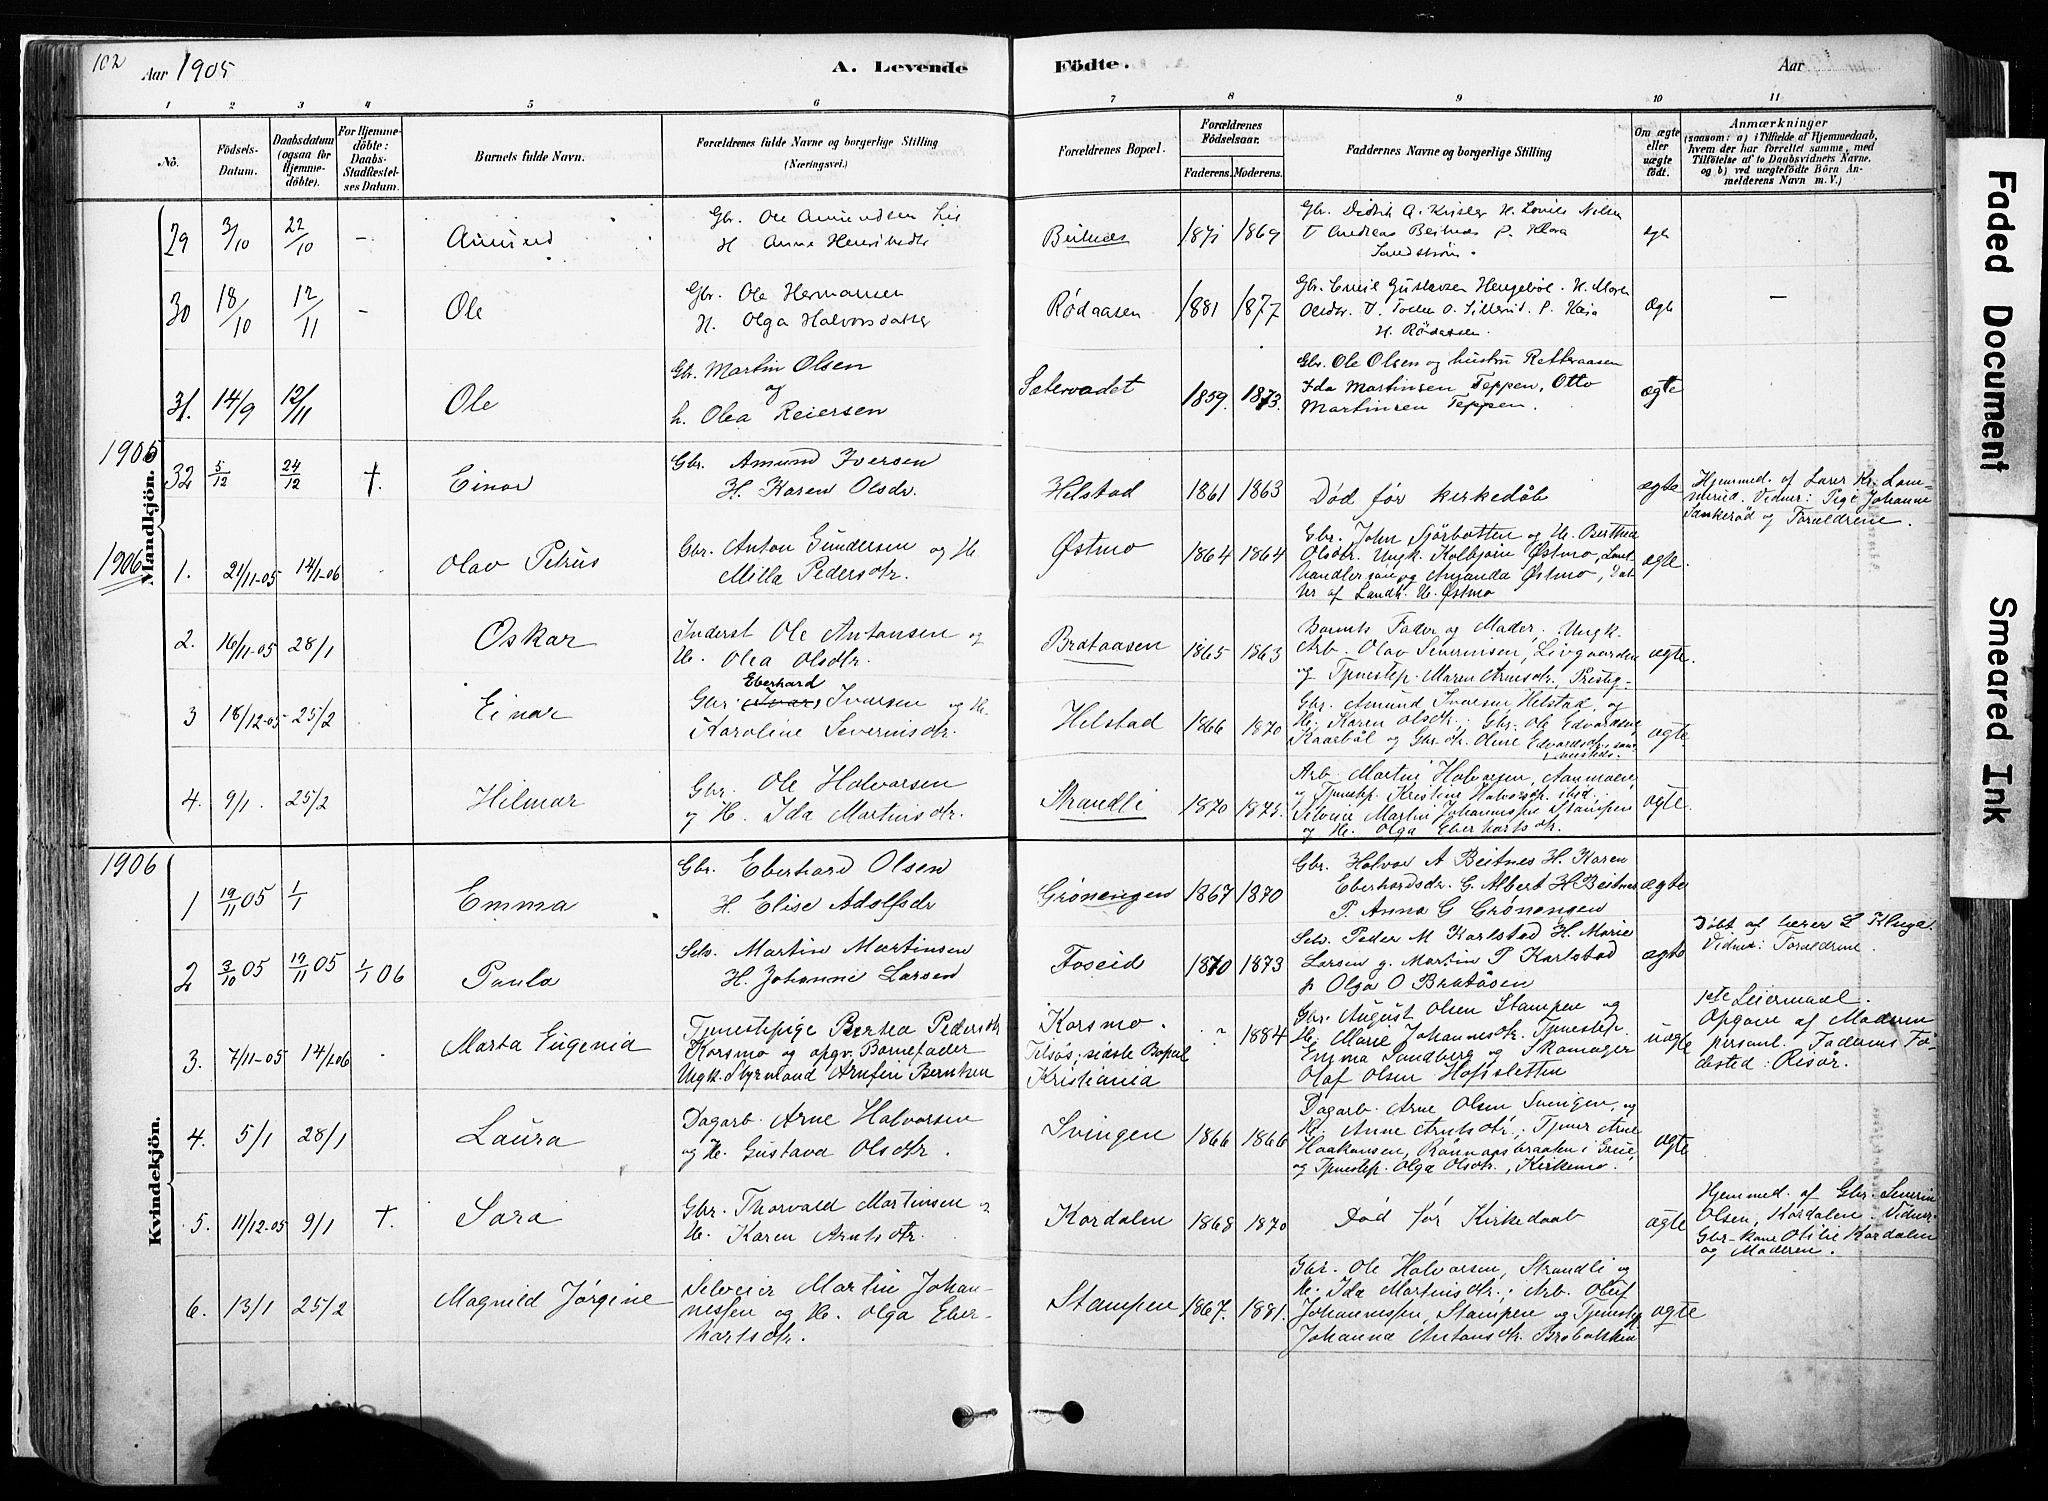 102
Aar 1905
A. Levende Födte.
Aar
1 2 3 4 5 6 7 8 9 10 11
No.
Födsels-Datum.
Daabsdatum (ogsaa for Hjemme-döbte).
For Hjemme-döbte: Daabs-Stadfæstel-ses Datum.
Barnets fulde Navn.
Forældrenes fulde Navne og borgerlige Stilling
(Næringsvei.)
Forældrenes Bopæl.
Forældrenes Födselsaar.
Faderens. Moderens.
Faddernes Navne og borgerlige Stilling
Om ægte eller uægte födt.
Anmærkninger
(saasom: a) i Tilfælde af Hjemmedaab, hvem der har forrettet samme, med Tilföielse af to Daabsvidners Navne. og b) ved uægtefödte Börn Anmelderens Navn m. V.)
Mandkjön.
29 3/10 22/10 - Amund
Gbr. Ole Amundsen
H Anne
Beitnæs 1871 1869
Gbr. Didrik A. H. Lovise Nilsen
Andreas Beitnæs P. Klara
Sandström.
30 18/10 12/11 - Ole
Gbr. Ole Hermansen
H. Olga Halvorsdatter
Rødaasen 1881 1877
Gbr. Emil Gustavsen H.
P. Kaja
H. Rødaasen.
Ægte -
31. 14/9 12/11 Ole
Gbr. Martin Olsen
og
h. Olea Reiersen
Sætervadet 1859. 1873.
Gbr. Ole Olsen og hustru Retteraasen
Ida Martinsen Teppen, Otto
Martinsen Teppen.
ægte
1905
32 5/12 24/12 †. Einar
Gbr. Amund Iversen
H. Karen Olsdr.
Helstad 1861 1863
Død før kirkedåb
ægte
Hjemmed. af Lærer Kr.
Vidner: Pige Johanne
og Forældrene.
1906
1. 21/11-05 14/1-06 Olav Petrus
Gbr. Anton Gundersen og H.
Milla Pedersdtr.
Østmo 1864 1864
Gbr. John Sjørbotten og H. Berthea
Olsdtr. Ungk. Kolbjørn Østmo,
handlersøn og Amanda Østmo,
af Landh. H. Østmo
ægte.
2. 16/11-05 28/1 Oskar
Inderst Ole Antonsen og
H. Olea Olsdtr.
Brataasen 1865 1863
Barnets Fader og Moder, Ungk.
Arb. Olav Severinsen, Livgaarden
og Tjenestep. Maren Arnesdtr, Prestg-
ægte.
3 18/12-05 25/2 Einar
Eberhard
Gbr. (Ivar) Iversen og H.
Karoline Severinsdtr.
Helstad 1866 1870
Gbr. Amund Iversen Helstad, og
H. Karen Olsdtr.; Gbr. Ole Edvardsen,
Kaarbøl og Gbr.dtr. Oline Edvardsdtr.,
ægte.
4. 9/1. 25/2 Hilmar
Gbr. Ole Halvorsen
og H. Ida Martinsdtr.
Strandli 1870 1875.
Arb. Martin Halvorsen,
og Tjenestep. Kristine Halvorsdtr. ibid.
Selveier Martin Johannessen Stampen
og H. Olga Eberhartsdtr.
ægte.
Kvindekjön.
1906
1 19/11 05 1/1 Emma
Gbr. Eberhard Olsen
H. Elise Adolfsdr
Grønengen 1867 1870
Gbr. Halvor A Beitnes H. Karen
Eberhardsdr. G. Albert H Beitnes
P. Anna G Grønengen
ægte
2 3/10 05 19/11 05 1/1 06 Paula
Selv. Martin Martinsen
H. Johanne Larsen
Foseid 1870 1873
Selv. Peder M Karlstad H. Marie
Larsen g. Martin P Karlstad
p Olga O Bratåsen
ægte
Døbt af lærer L Kluge.
Vidner: Forældrene.
3. 7/11-05 14/1 06 Marta Eugenia
Tjenestepige Berthea Pedersdtr
Korsmo og opgv. Barnefader
Ungk. Styrmand Arnfin Berntsen
Korsmo.
sidste Bopæl
Kristiania
? 1884
Gbr. August Olsen Stampen og
H. Marie Johannesdtr. Tjenestep.
Emma Sandberg og Skomager
Olaf Olsen Hofsletten
uægte
1ste Leiermaal.
Opgave af Moderen
personl. Faderens Fø-
dested: Risør.
4. 5/1 28/1 Laura
Dagarb. Arne Halvorsen
og H. Gustava Olsdtr.
Svingen 1866 1866
Dagarb. Arne Olsen Svingen, og
H. Anne Arntsdtr.; Tjener Arne
Haakonsen, i Grue,
og Tjenestep. Olga Olsdtr., Kirkemo.
ægte
5. 11/12-05 9/1 †. Sara
Gbr. Thorvald Martinsen og
H. Karen Arntsdtr.
Kordalen 1868 1870
Død før Kirkedaab
ægte
Hjemmed. af Gbr. Severin
Olsen, Kordalen. Vidner:
Gbr-kone Otilie Kordalen
og Moderen.
6. 13/1 25/2 Magnild Jørgine
Selveier Martin Johan-
nessen og H. Olga Eber-
hartsdtr.
Stampen 1867. 1881.
Gbr. Ole Halvorsen, Strandli og
H. Ida Martinsdtr.; Arb. Oluf
Johannessen, Stampen og Tjenestep.
Johanna Antonsdtr.
ægte
Faded Document
Smeared Ink